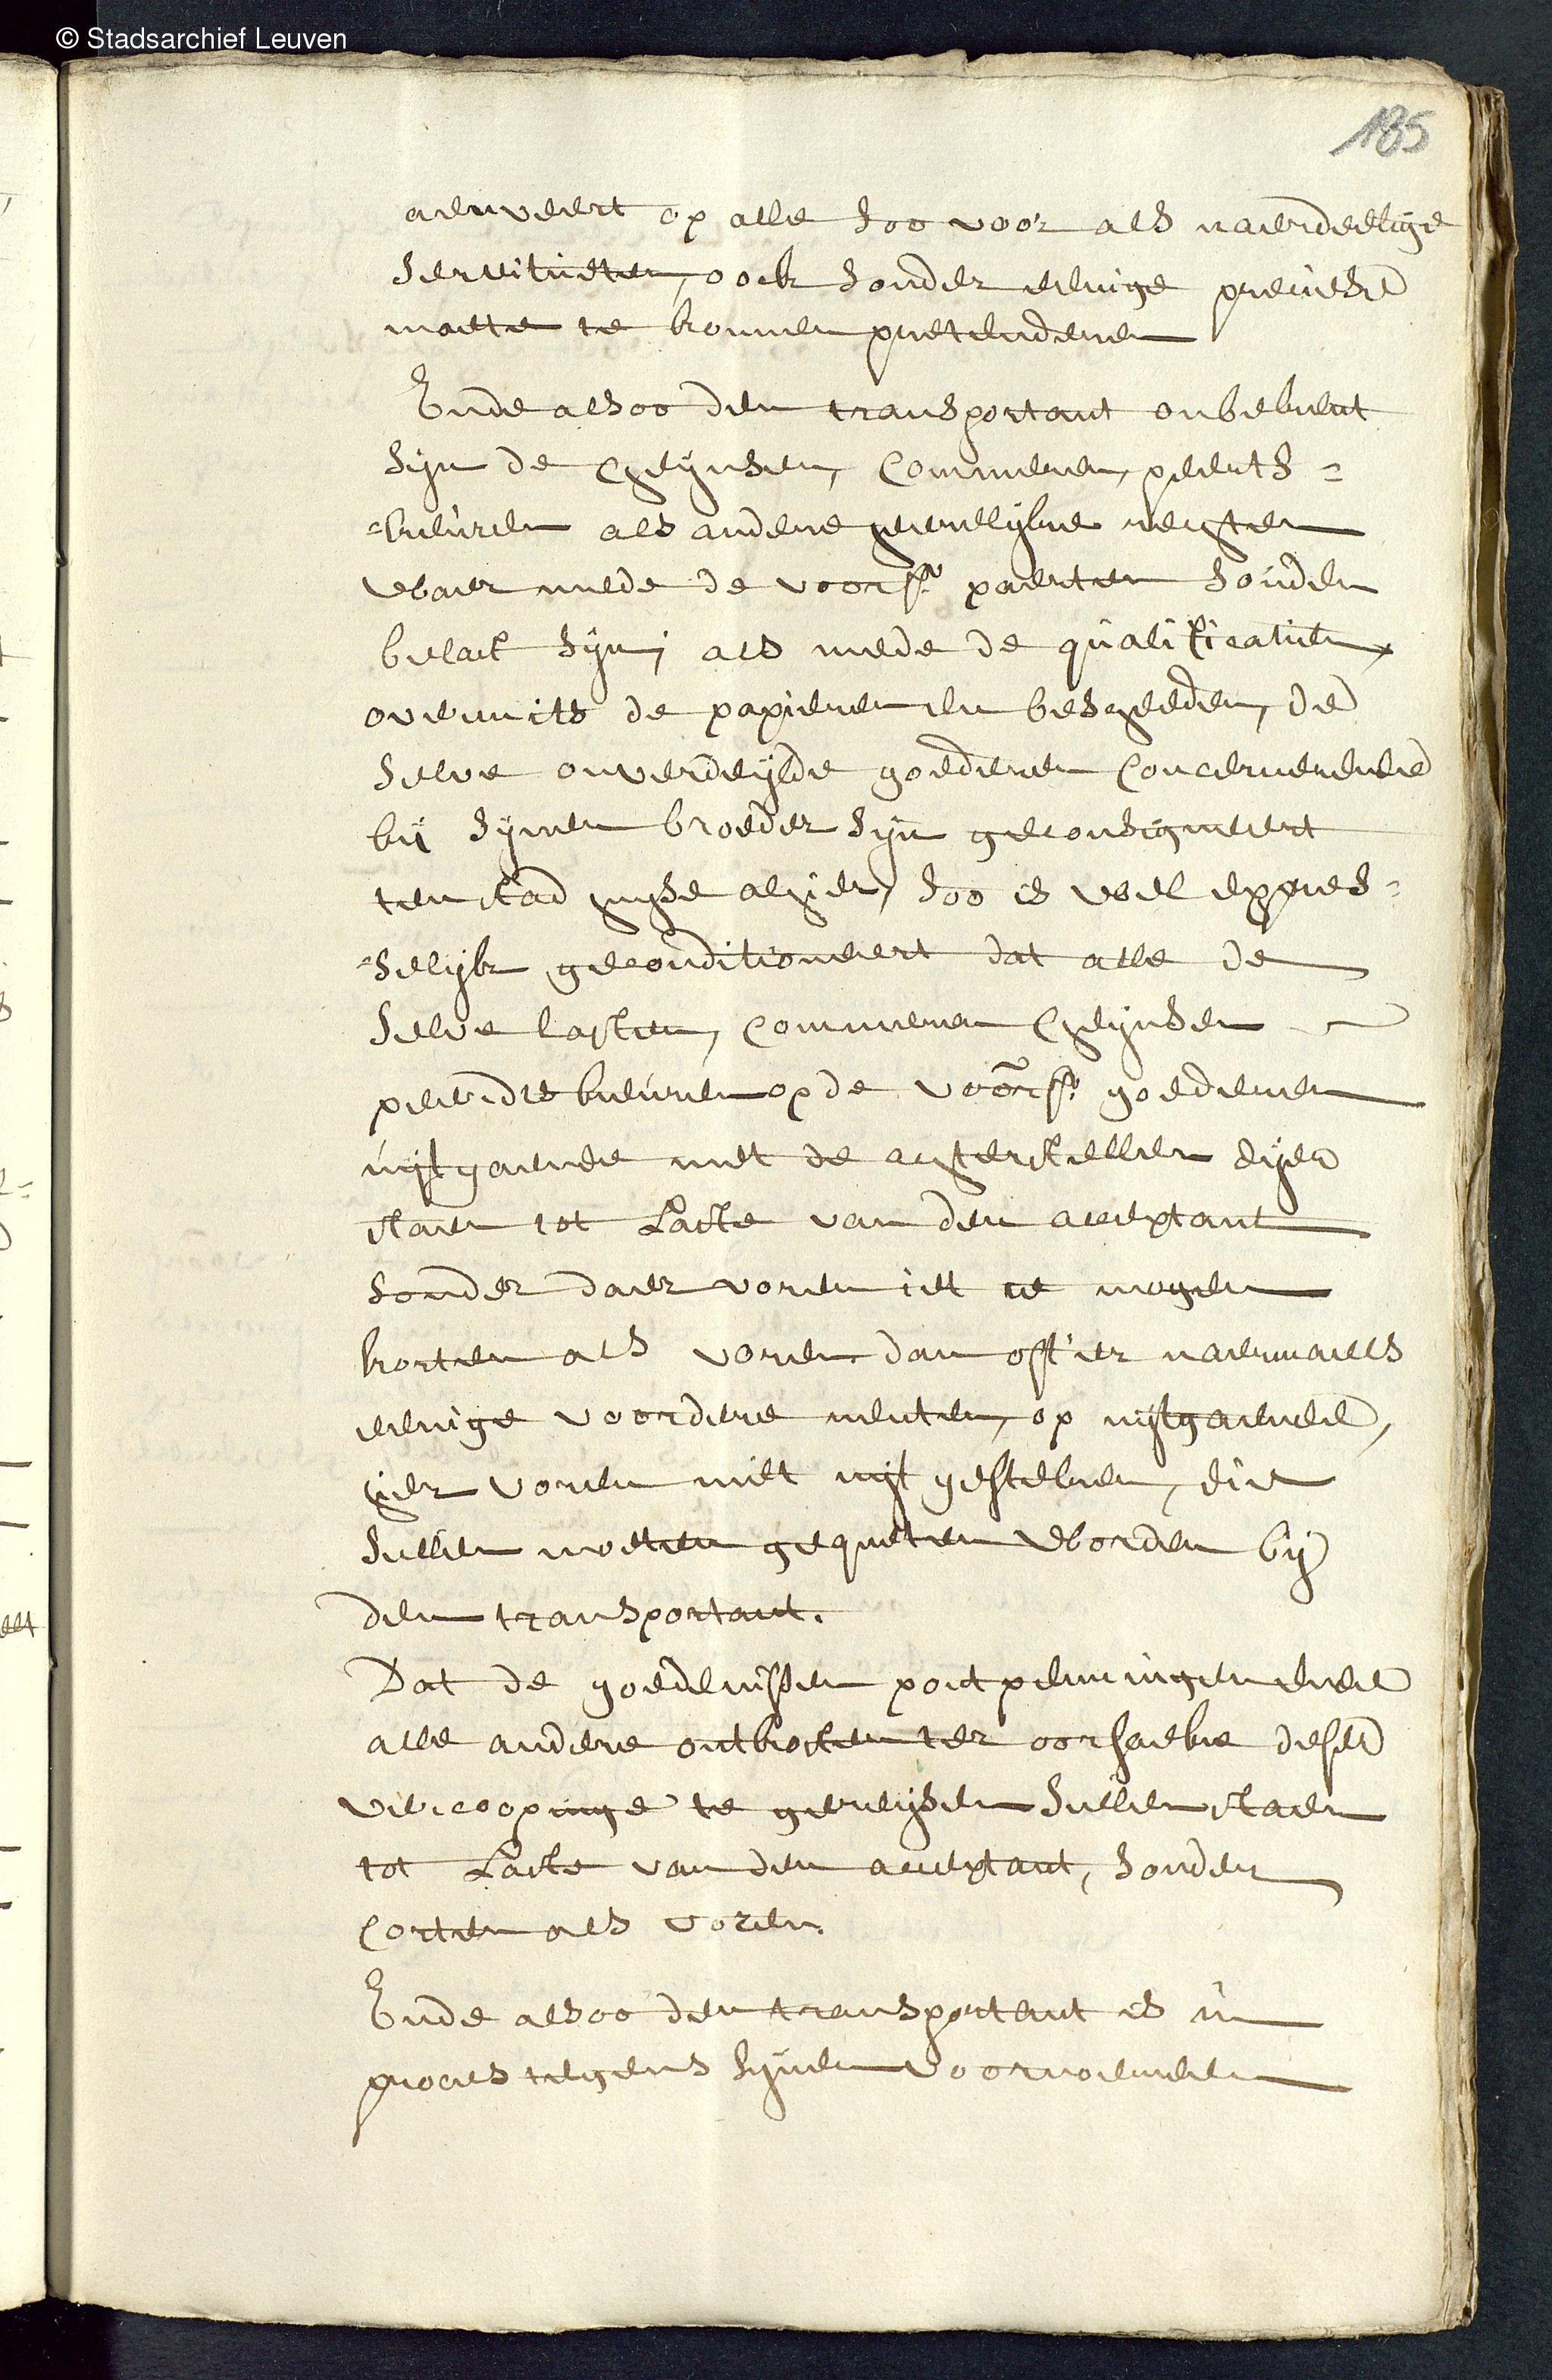 © Stadsarchief Leuven
185
aenveert op alle soo voor als naerdeelige
servituten, oock sonder eenige precise
maete te konnen pretenderen
Ende alsoo den transportant onbekent
sijn de cheijnsen, commeren, peerts=
=keuren als andere heerelijke rechten
waer mede de voors. paerten souden
belast sijn, als mede de qualificatien,
overmits de papieren en bescheeden, de
selve onverdeijlde goederen concernerende
bij sijnen broeder sijn geconsigneert
ten stad huyse alhier, soo is wel expres=
=selijk geconditioneert dat alle de
selve lasten, commeren cheijnsen
peerdts keuren op de voors. goederen
uijtgaende met de achterstellen dijer
staen tot Laste van den acceptant
sonder daer voren iet te mogen
korten als voren dan oft ier naermaels
eenige voordere renten, op uijtgaende,
hier voren niet uijt gesteken, die
sullen moeten gequeten worden bij
den transportant.
Dat de goedenissen pontpenningen ende
alle andere onkosten ter oorsaeke deser
vercoopinge te gereijsen sullen staen
tot Laste van den acceptant, sonder
Corten als voren.
Ende alsoo den transportant is in
proces tegens sijnen voornoemden